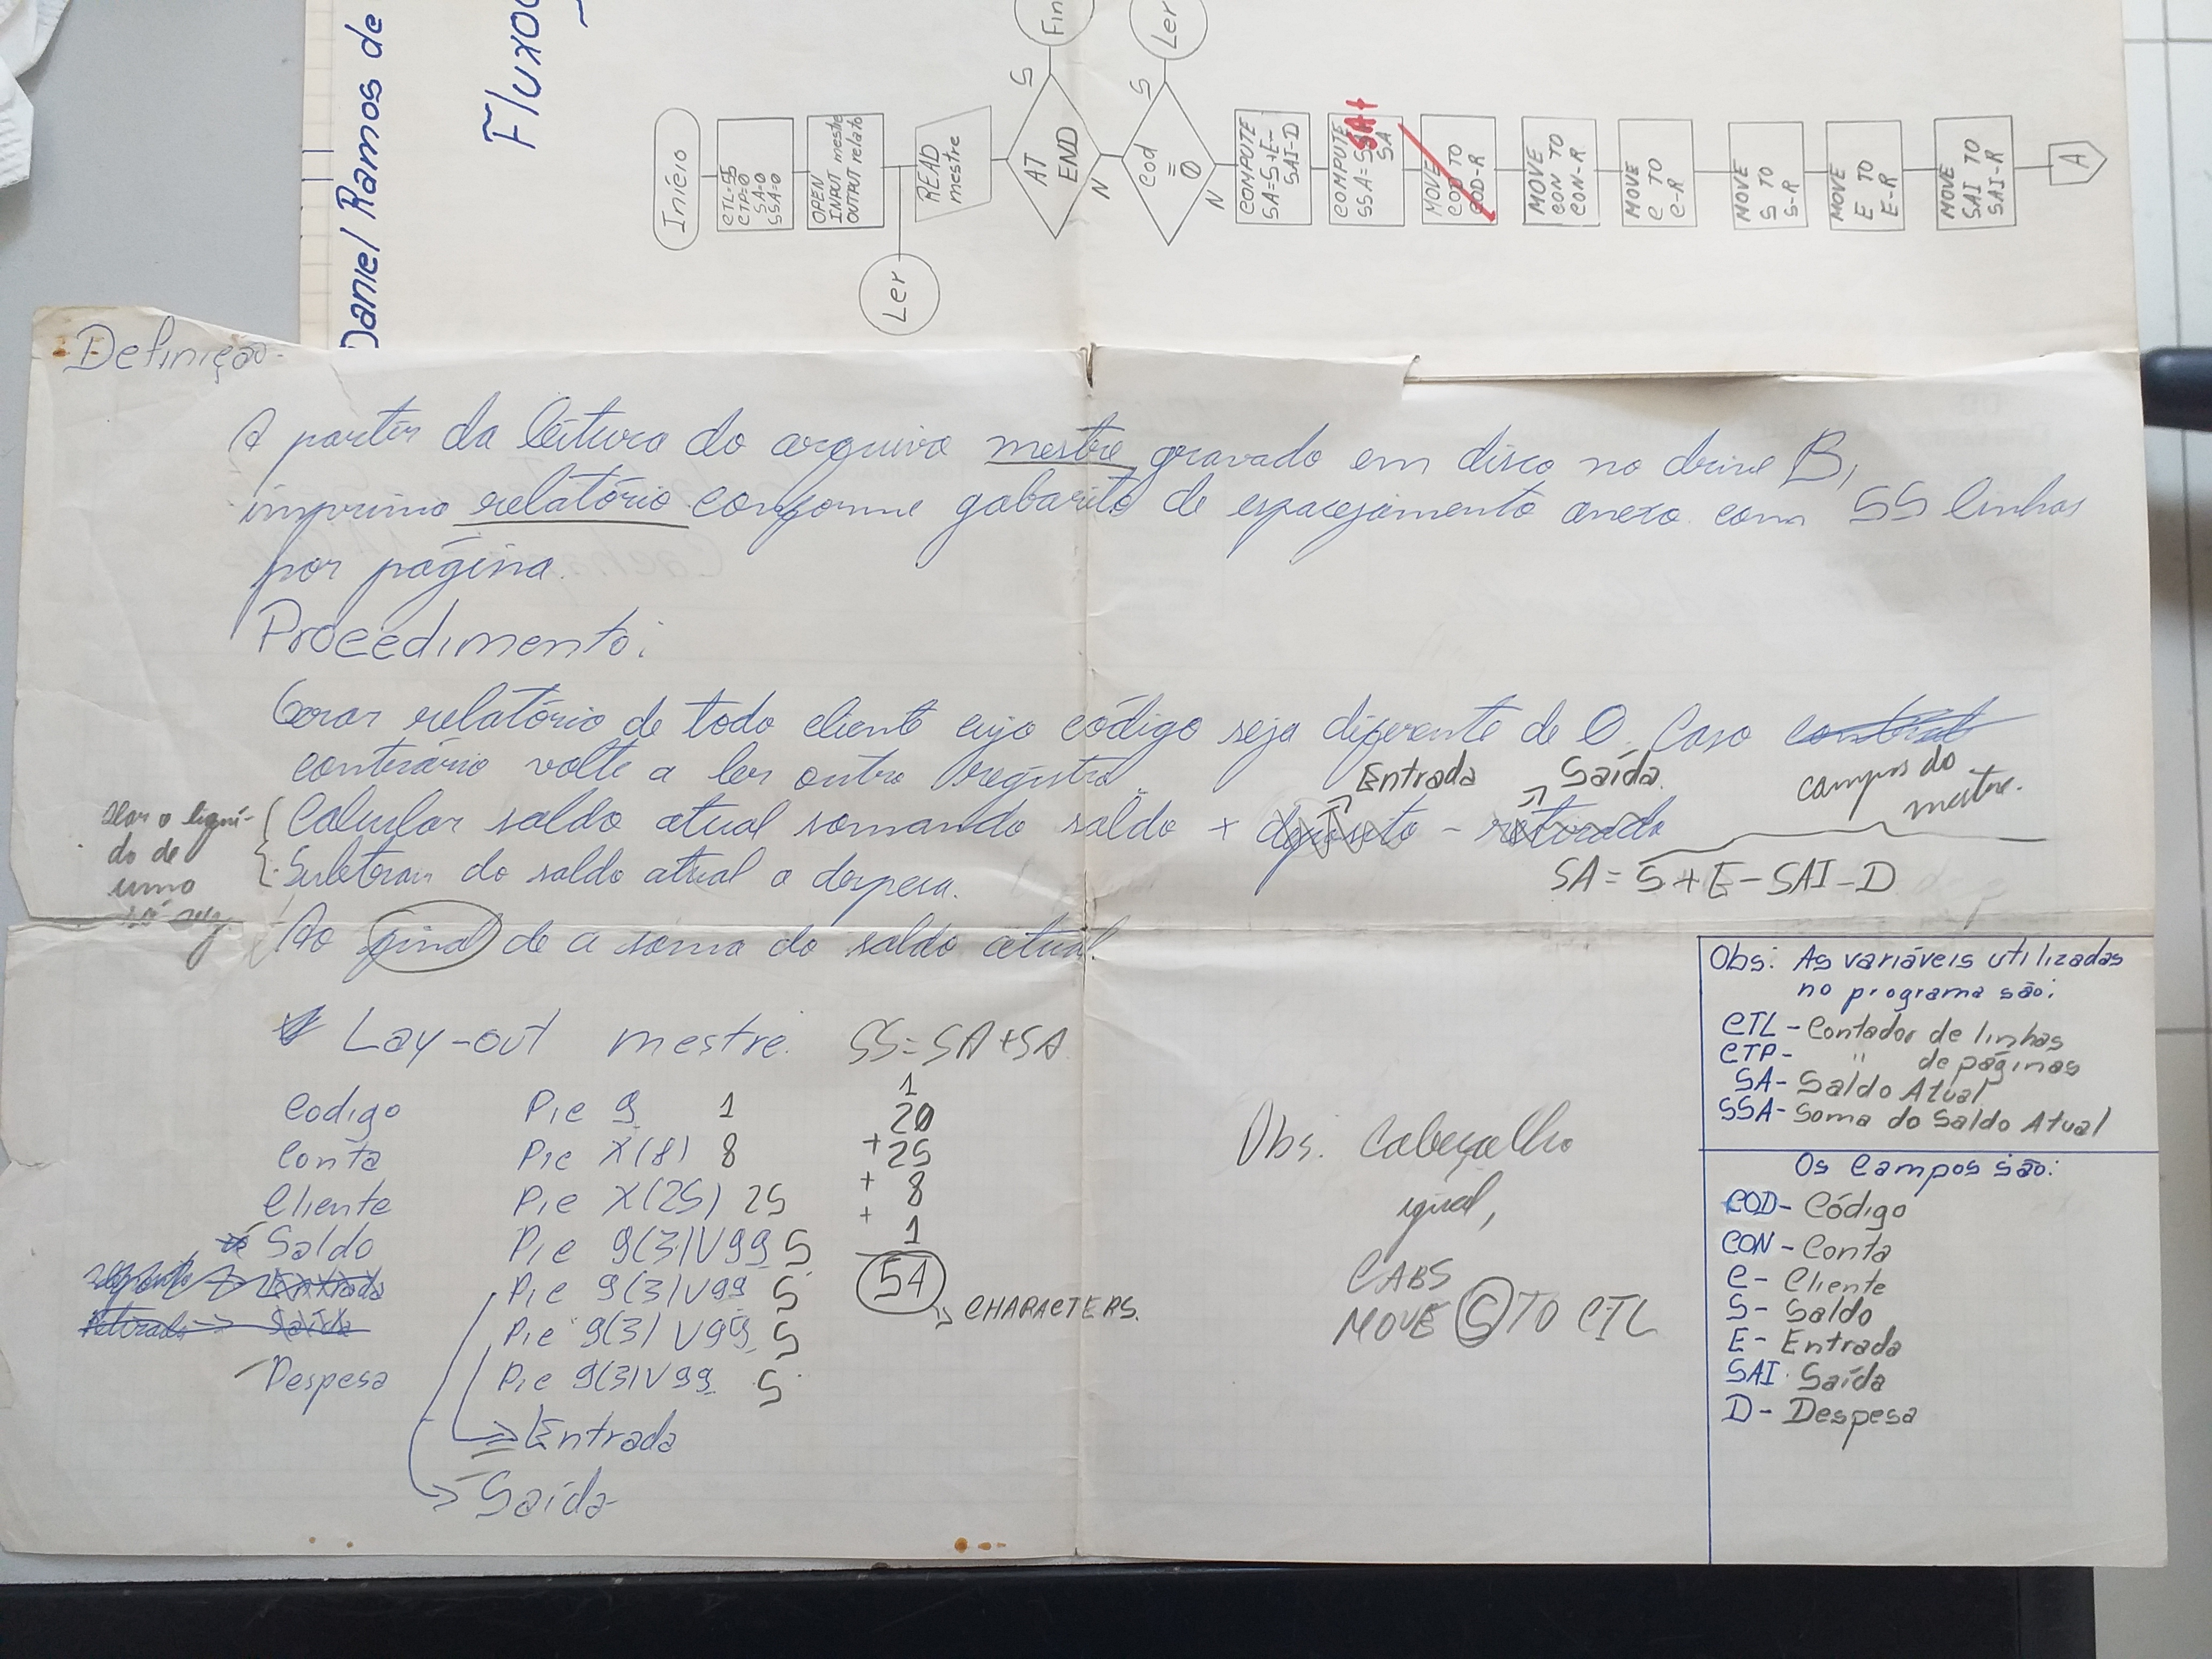 Daniel Ramos de
Fluxo
Início
CTL=55
CTP=0
SA=0
SSA=0
OPEN
INPUT mestre
OUTPUT relato
Ler
READ
mestre
AT
END
S
Fin
N
Cod
=
0
S
Ler
N
COMPUTE
SA=S+E-
SAI-D
COMPUTE
SSA=SSA+
SA
MOVE
COD TO
COD-R
MOVE
CON TO
CON-R
MOVE
C TO
C-R
MOVE
S TO
S-R
MOVE
E TO
E-R
MOVE
SAI TO
SAI-R
A
Definição
A partir da leitura do arquivo mestre gravado em disco no drive B,
imprima relatório conforme gabarito de espacejamento anexo com 55 linhas
por página.
Procedimento:
Gerar relatório de todo cliente cujo código seja diferente de 0. Caso
contrário volte a ler outro registro
Entrada Saída
campos do
mestre.
Calcular saldo atual somando saldo + deposito - retirada
Subtrair do saldo atual a despesa.
SA = S + E - SAI - D
de
uma
Ao final de a soma do saldo atual.
Lay-out mestre. SS = SA + SA
Codigo Pic 9 1
Conta Pic X(8) 8
Cliente Pic X(25) 25
Saldo Pic 9(3)V99 5
Entrada Pic 9(3)V99 5
Saída Pic 9(3)V99 5
Despesa Pic 9(3)V99 5
Entrada
Saída
1
20
+ 25
+ 8
+ 1
54
CHARACTERS.
Obs. Cabeçalho
igual,
CABS
MOVE 5 TO CTL
Obs: As variáveis utilizadas
no programa são:
CTL - Contador de linhas
CTP - " de páginas
SA - Saldo Atual
SSA - Soma do Saldo Atual
Os Campos são:
COD - Código
CON - Conta
C - Cliente
S - Saldo
E - Entrada
SAI - Saída
D - Despesa